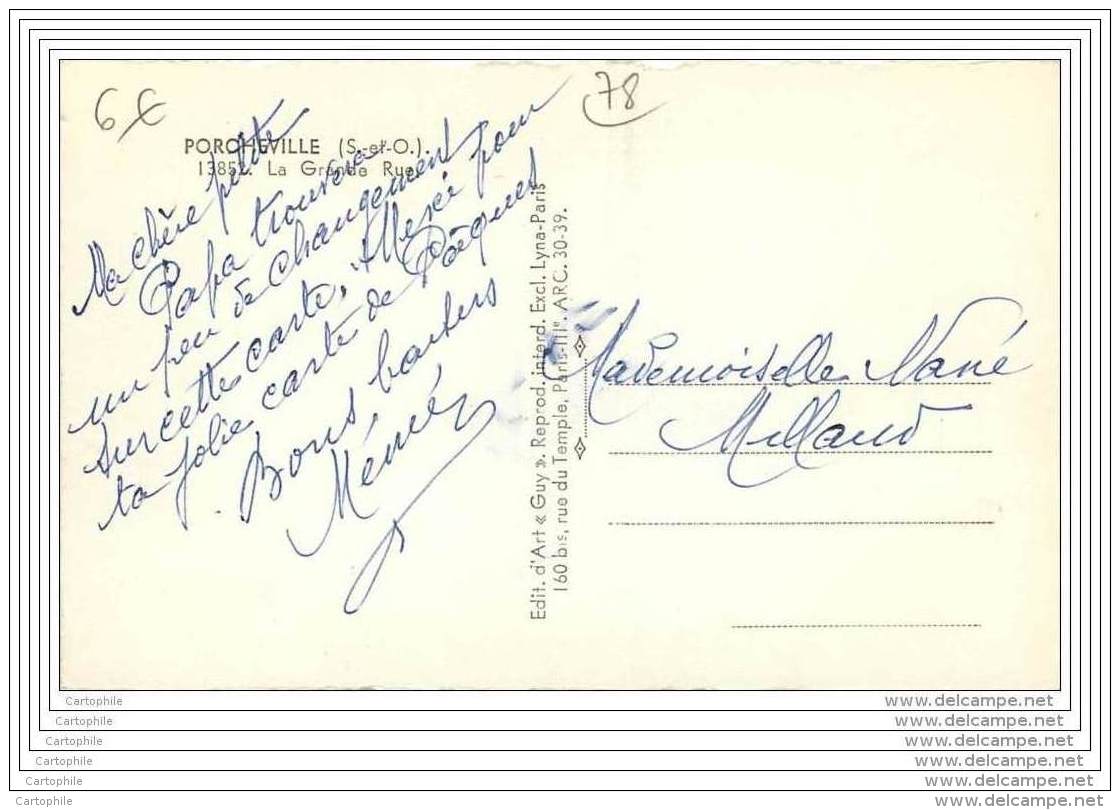 6€
78
PORCHEVILLE (S.-et-O.).
13852. La Grande Rue
Ma chère petite
Papa trouvera
un peu de changement
sur cette carte, Merci pour
ta jolie carte de Pâques
Bons baisers
Mémé
Edit. d'Art « Guy ». Reprod. interd. Excl. Lyna-Paris
160 bis, rue du Temple, Paris-IIIe. ARC. 30-39.
Mademoiselle Nané
Millaud
Cartophile www.delcampe.net
Cartophile www.delcampe.net
Cartophile www.delcampe.net
Cartophile www.delcampe.net
Cartophile www.delcampe.net
Cartophile www.delcampe.net